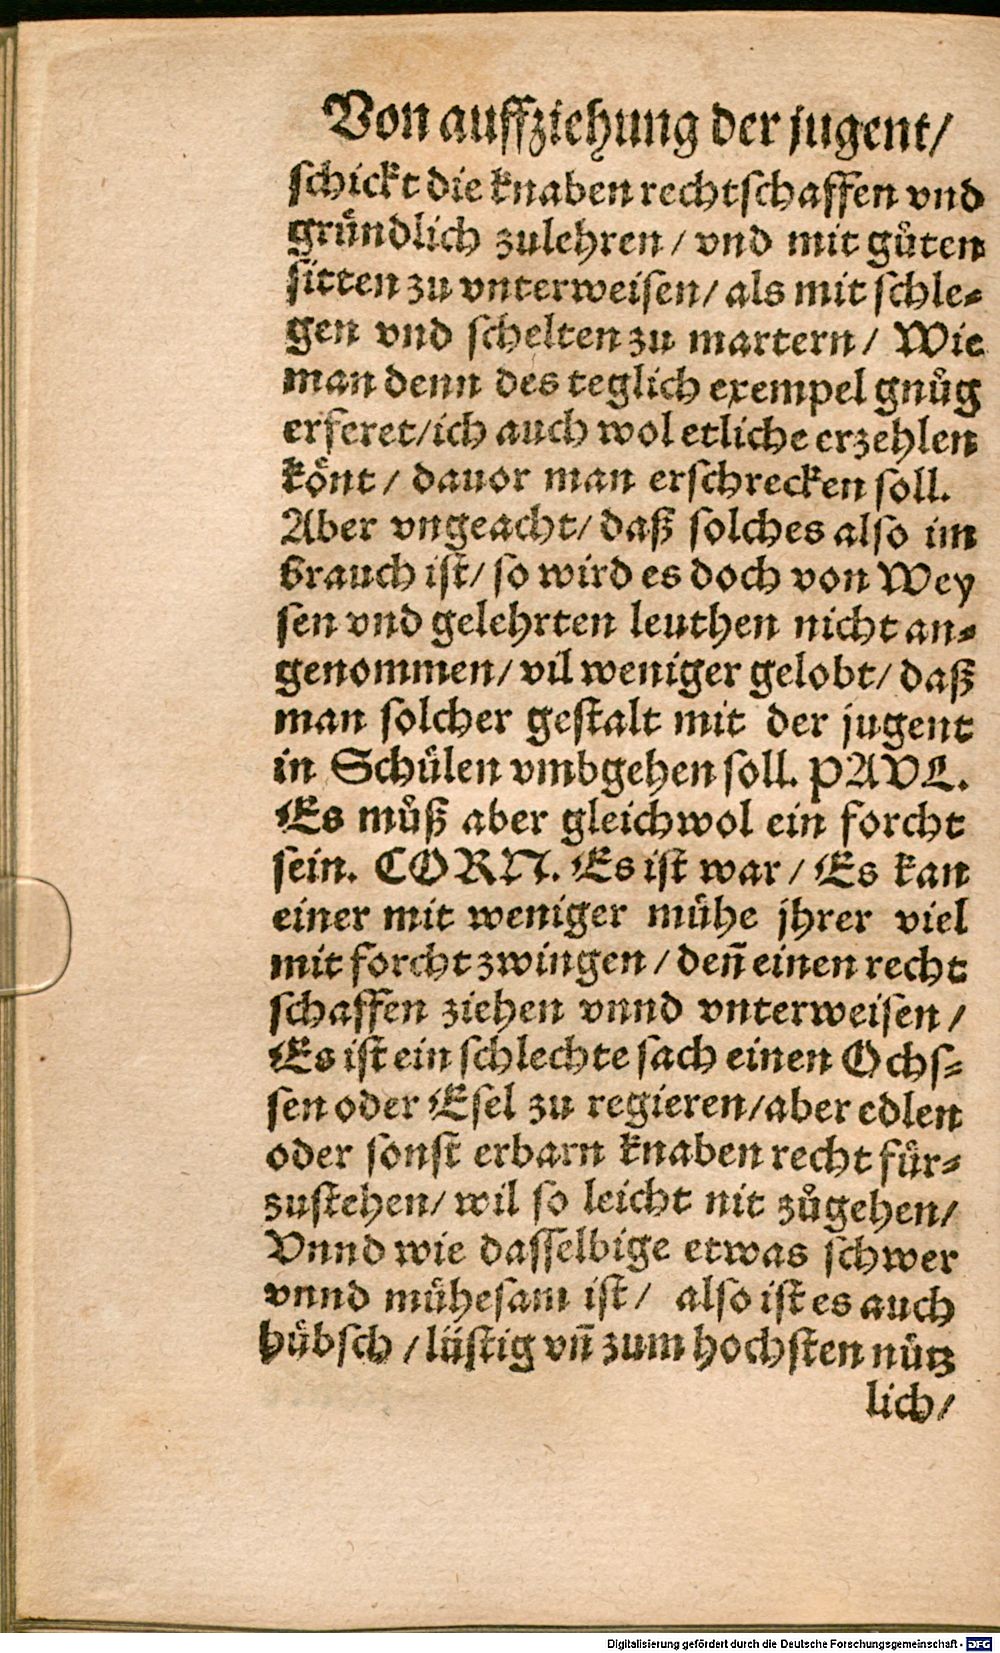 Von auffziehung der jugent/
schickt die knaben rechtschaffen vnd
gründlich zulehren / vnd mit gůten
sitten zu vnterweisen/ als mit schle⸗
gen vnd schelten zu martern/ Wie
man denn des teglich exempel gnůg
erferet/ich auch wol etliche erzehlen
könt/ dauor man erschrecken soll.
Aber vngeacht/ daß solches also im
brauch ist/ so wird es doch von Wey
sen vnd gelehrten leuthen nicht an⸗
genommen/ vil weniger gelobt/ daß
man solcher gestalt mit der jugent
in Schülen vmbgehen soll. PAVL.
Es můß aber gleichwol ein forcht
sein. CORN. Es ist war/ Es kan
einer mit weniger mühe jhrer viel
mit forcht zwingen/ deñ einen recht
schaffen ziehen vnnd vnterweisen/
Es ist ein schlechte sach einen Ochs⸗
sen oder Esel zu regieren/aber edlen
oder sonst erbarn knaben recht für⸗
zustehen/ wil so leicht nit zůgehen/
Vnnd wie dasselbige etwas schwer
vnnd mühesam ist/ also ist es auch
hübsch/lüstig vñ zum hochsten nütz
lich/
Digitalisierung gefördert durch die Deutsche Forschungsgemeinschaft - DFG